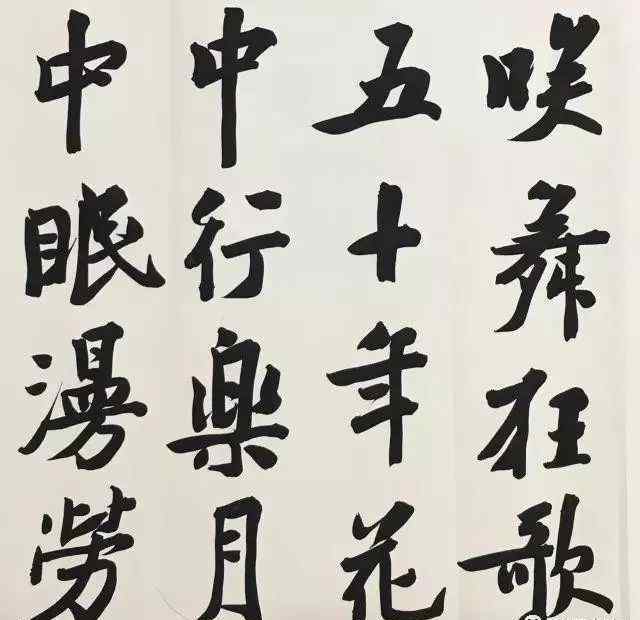 咲舞狂歌
五十年花
中行楽月
中眠漫労